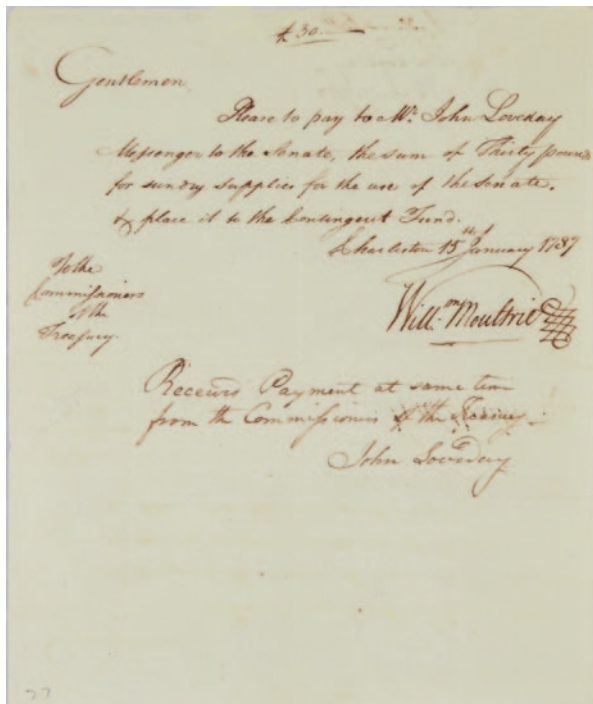 £ 30.
Gentlemen
Please to pay to Mr. John Loveday
Messenger to the Senate, the sum of Thirty pounds
for sundry supplies for the use of the Senate.
& place it to the Contingent Fund.
Charleston 15th January 1787
To the
Commissioners
of the
Treasury.
Will.m Moultrie
Received Payment at same time
from the Commissioners of the Treasury
John Loveday
77